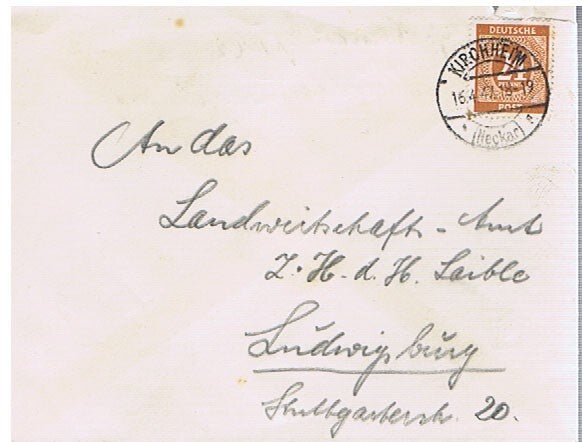 DEUTSCHE
24
PFENNIG
POST
KIRCHHEIM
16.4.47
(Neckar)
An das
Landwirtschafts-Amt
Z. H. d. H. Laible
Ludwigsburg
Stuttgarterstr. 20.